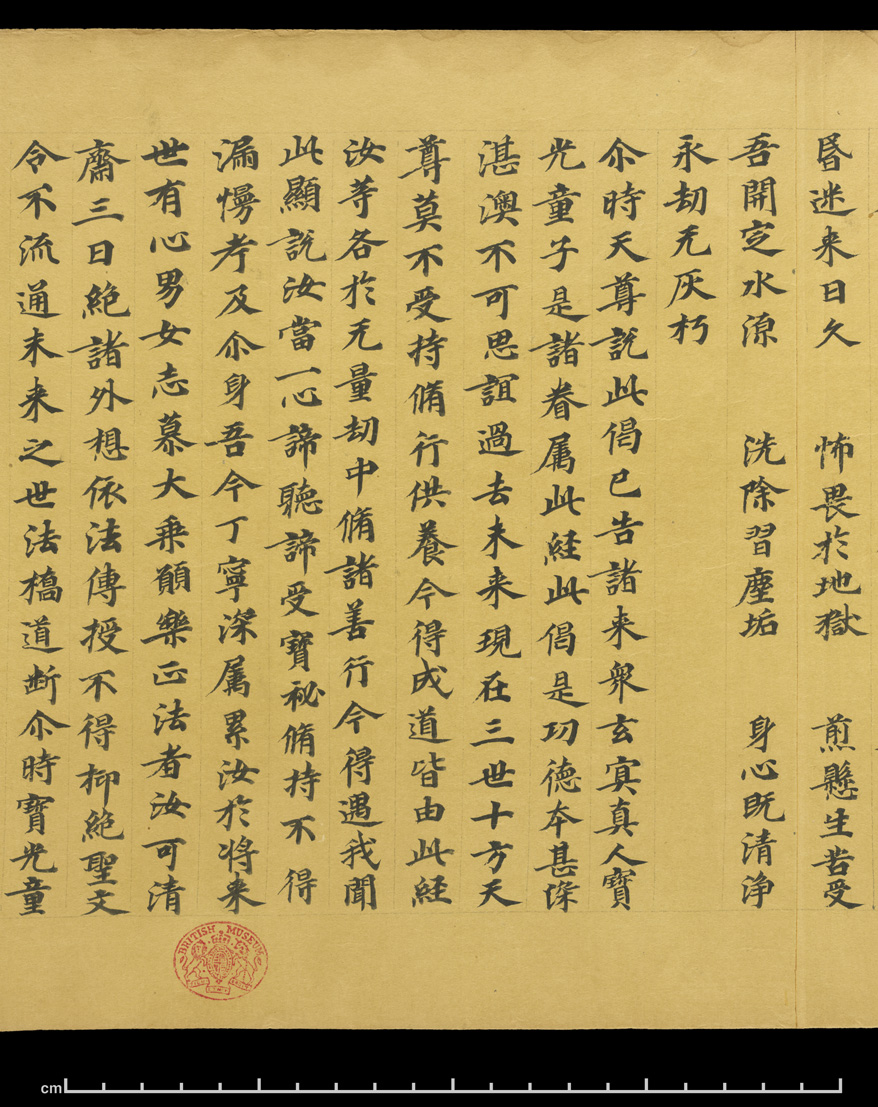 昬迷来日久　怖畏於地獄　煎懸生苦受
吾開定水源　洗除習塵垢　身心既清浄
永劫无灰朽
尒時天尊說此偈已告諸来衆玄㝠真人寳
光童子是諸眷属此経此偈是功德夲甚深
湛澳不可思誼過去未来現在三世十方天
尊莫不受持脩行供養今得成道皆由此経
汝等各於无量劫中脩諸善行今得遇我聞
此顯說汝當一心諦聽諦受寳祕脩持不得
漏慢考及尒身吾今丁寧深属累汝於将来
世有心男女志慕大乗願樂正法者汝可清
齋三日絶諸外想依法傳授不得抑絶聖文
令不流通未来之世法橋道断尒時寳光童
BRITISH MUSEUM
cm